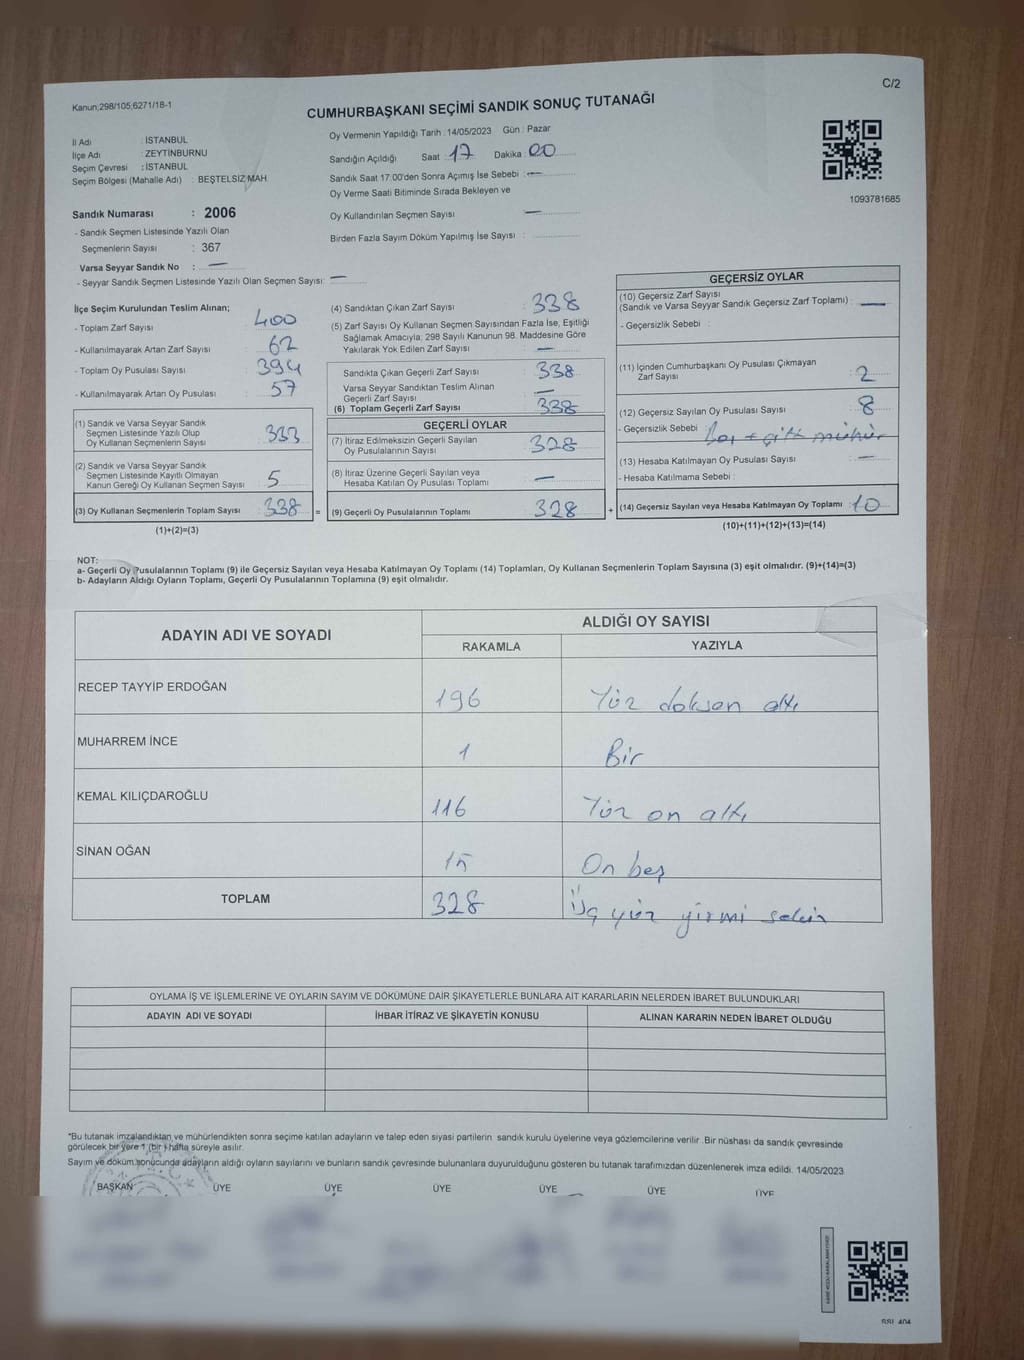 C/2
Kanun;298/105;6271/18-1
CUMHURBAŞKANI SEÇİMİ SANDIK SONUÇ TUTANAĞI
İl Adı : İSTANBUL
İlçe Adı : ZEYTİNBURNU
Seçim Çevresi : İSTANBUL
Seçim Bölgesi (Mahalle Adı) : BEŞTELSİZ MAH.
Oy Vermenin Yapıldığı Tarih : 14/05/2023 Gün : Pazar
Sandığın Açıldığı Saat : 17 Dakika : 00
Sandık Saat 17:00'den Sonra Açımış İse Sebebi : —
Oy Verme Saati Bitiminde Sırada Bekleyen ve
Oy Kullandırılan Seçmen Sayısı —
Birden Fazla Sayım Döküm Yapılmış İse Sayısı :
1093781685
Sandık Numarası : 2006
- Sandık Seçmen Listesinde Yazılı Olan
Seçmenlerin Sayısı : 367
Varsa Seyyar Sandık No : —
- Seyyar Sandık Seçmen Listesinde Yazılı Olan Seçmen Sayısı: —
İlçe Seçim Kurulundan Teslim Alınan;
- Toplam Zarf Sayısı 400
- Kullanılmayarak Artan Zarf Sayısı 62
- Toplam Oy Pusulası Sayısı 394
- Kullanılmayarak Artan Oy Pusulası 57
(1) Sandık ve Varsa Seyyar Sandık
Seçmen Listesinde Yazılı Olup
Oy Kullanan Seçmenlerin Sayısı 333
(2) Sandık ve Varsa Seyyar Sandık
Seçmen Listesinde Kayıtlı Olmayan
Kanun Gereği Oy Kullanan Seçmen Sayısı 5
(3) Oy Kullanan Seçmenlerin Toplam Sayısı 338 =
(1)+(2)=(3)
(4) Sandıktan Çıkan Zarf Sayısı : 338
(5) Zarf Sayısı Oy Kullanan Seçmen Sayısından Fazla İse, Eşitliği
Sağlamak Amacıyla; 298 Sayılı Kanunun 98. Maddesine Göre
Yakılarak Yok Edilen Zarf Sayısı : —
Sandıkta Çıkan Geçerli Zarf Sayısı : 338
Varsa Seyyar Sandıktan Teslim Alınan
Geçerli Zarf Sayısı —
(6) Toplam Geçerli Zarf Sayısı 338
GEÇERLİ OYLAR
(7) İtiraz Edilmeksizin Geçerli Sayılan
Oy Pusulalarının Sayısı 328
(8) İtiraz Üzerine Geçerli Sayılan veya
Hesaba Katılan Oy Pusulası Toplamı —
(9) Geçerli Oy Pusulalarının Toplamı 328 +
GEÇERSİZ OYLAR
(10) Geçersiz Zarf Sayısı
(Sandık ve Varsa Seyyar Sandık Geçersiz Zarf Toplamı) : —
- Geçersizlik Sebebi :
(11) İçinden Cumhurbaşkanı Oy Pusulası Çıkmayan
Zarf Sayısı : 2
(12) Geçersiz Sayılan Oy Pusulası Sayısı : 8
- Geçersizlik Sebebi : Boş + çift mühür
(13) Hesaba Katılmayan Oy Pusulası Sayısı : —
- Hesaba Katılmama Sebebi :
(14) Geçersiz Sayılan veya Hesaba Katılmayan Oy Toplamı : 10
(10)+(11)+(12)+(13)=(14)
NOT:
a- Geçerli Oy Pusulalarının Toplamı (9) ile Geçersiz Sayılan veya Hesaba Katılmayan Oy Toplamı (14) Toplamları, Oy Kullanan Seçmenlerin Toplam Sayısına (3) eşit olmalıdır. (9)+(14)=(3)
b- Adayların Aldığı Oyların Toplamı, Geçerli Oy Pusulalarının Toplamına (9) eşit olmalıdır.
ADAYIN ADI VE SOYADI
ALDIĞI OY SAYISI
RAKAMLA YAZIYLA
RECEP TAYYİP ERDOĞAN 196 Yüz doksan altı
MUHARREM İNCE 1 Bir
KEMAL KILIÇDAROĞLU 116 Yüz on altı
SİNAN OĞAN 15 On beş
TOPLAM 328 Üç yüz yirmi sekiz
OYLAMA İŞ VE İŞLEMLERİNE VE OYLARIN SAYIM VE DÖKÜMÜNE DAİR ŞİKAYETLERLE BUNLARA AİT KARARLARIN NELERDEN İBARET BULUNDUKLARI
ADAYIN ADI VE SOYADI İHBAR İTİRAZ VE ŞİKAYETİN KONUSU ALINAN KARARIN NEDEN İBARET OLDUĞU
*Bu tutanak imzalandıktan ve mühürlendikten sonra seçime katılan adayların ve talep eden siyasi partilerin sandık kurulu üyelerine veya gözlemcilerine verilir. Bir nüshası da sandık çevresinde
görülecek bir yere 1 (bir) hafta süreyle asılır.
Sayım ve döküm sonucunda adayların aldığı oyların sayılarını ve bunların sandık çevresinde bulunanlara duyurulduğunu gösteren bu tutanak tarafımızdan düzenlenerek imza edildi. 14/05/2023
BAŞKAN ÜYE ÜYE ÜYE ÜYE ÜYE ÜYE